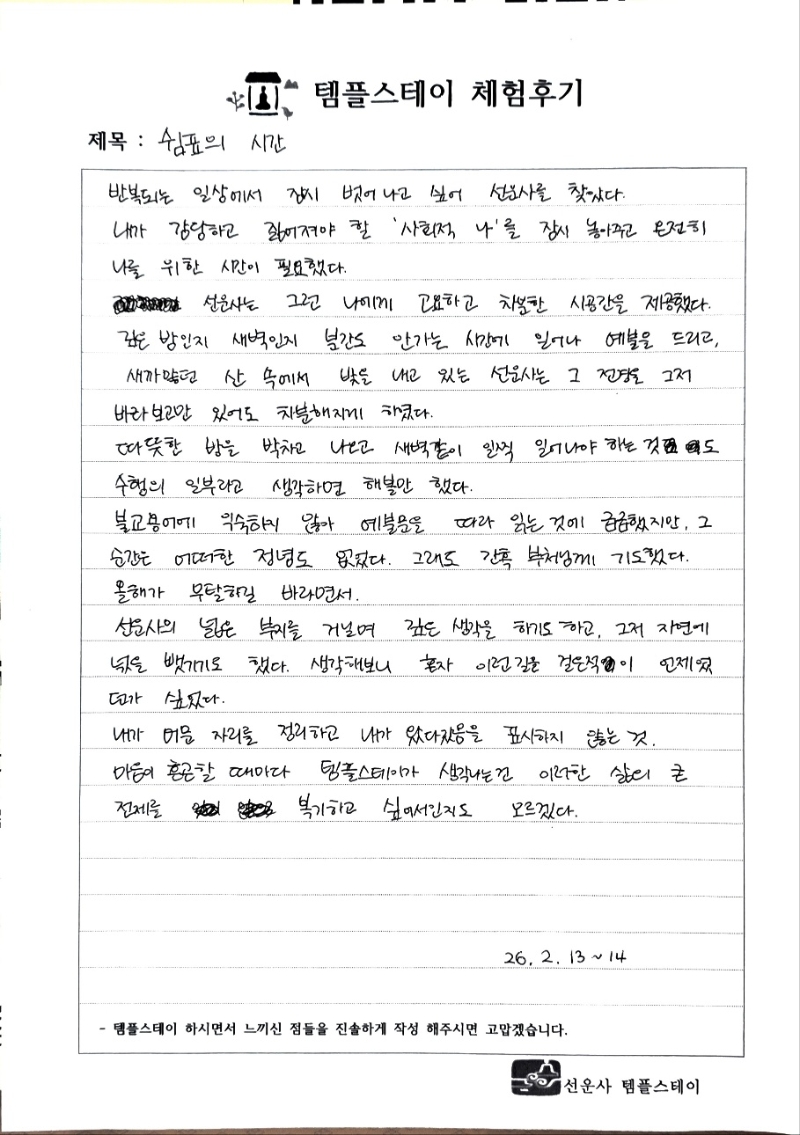 템플스테이 체험후기
제목 : 쉼표의 시간
반복되는 일상에서 잠시 벗어나고 싶어 선운사를 찾았다.
내가 감당하고 짊어져야 할 '사회적 나'를 잠시 놓아주고 온전히
나를 위한 시간이 필요했다.
선운사는 그런 나에게 고요하고 차분한 시공간을 제공했다.
깊은 밤인지 새벽인지 분간도 안가는 시간에 일어나 예불을 드리고,
새까맣던 산 속에서 빛을 내고 있는 선운사는 그 전경을 그저
바라보고만 있어도 차분해지게 하였다.
따뜻한 방을 박차고 나오고 새벽같이 일찍 일어나야 하는 것도
수행의 일부라고 생각하면 해볼만 했다.
불교용어에 익숙하지 않아 예불문을 따라 읽는 것에 급급했지만, 그
순간은 어떠한 정념도 없었다. 그래도 간혹 부처님께 기도했다.
올해가 무탈하길 바라면서.
선운사의 넓은 부지를 거닐며 깊은 생각을 하기도 하고, 그저 자연에
넋을 뺏기기도 했다. 생각해보니 혼자 이런길을 걸은적이 언제였
던가 싶었다.
내가 머문 자리를 정리하고 내가 왔다갔음을 표시하지 않는 것.
마음이 혼곤할 때마다 템플스테이가 생각나는건 이러한 삶의 큰
전제를 복기하고 싶어서인지도 모르겠다.
26. 2. 13 ~ 14
- 템플스테이 하시면서 느끼신 점들을 진솔하게 작성 해주시면 고맙겠습니다.
선운사 템플스테이